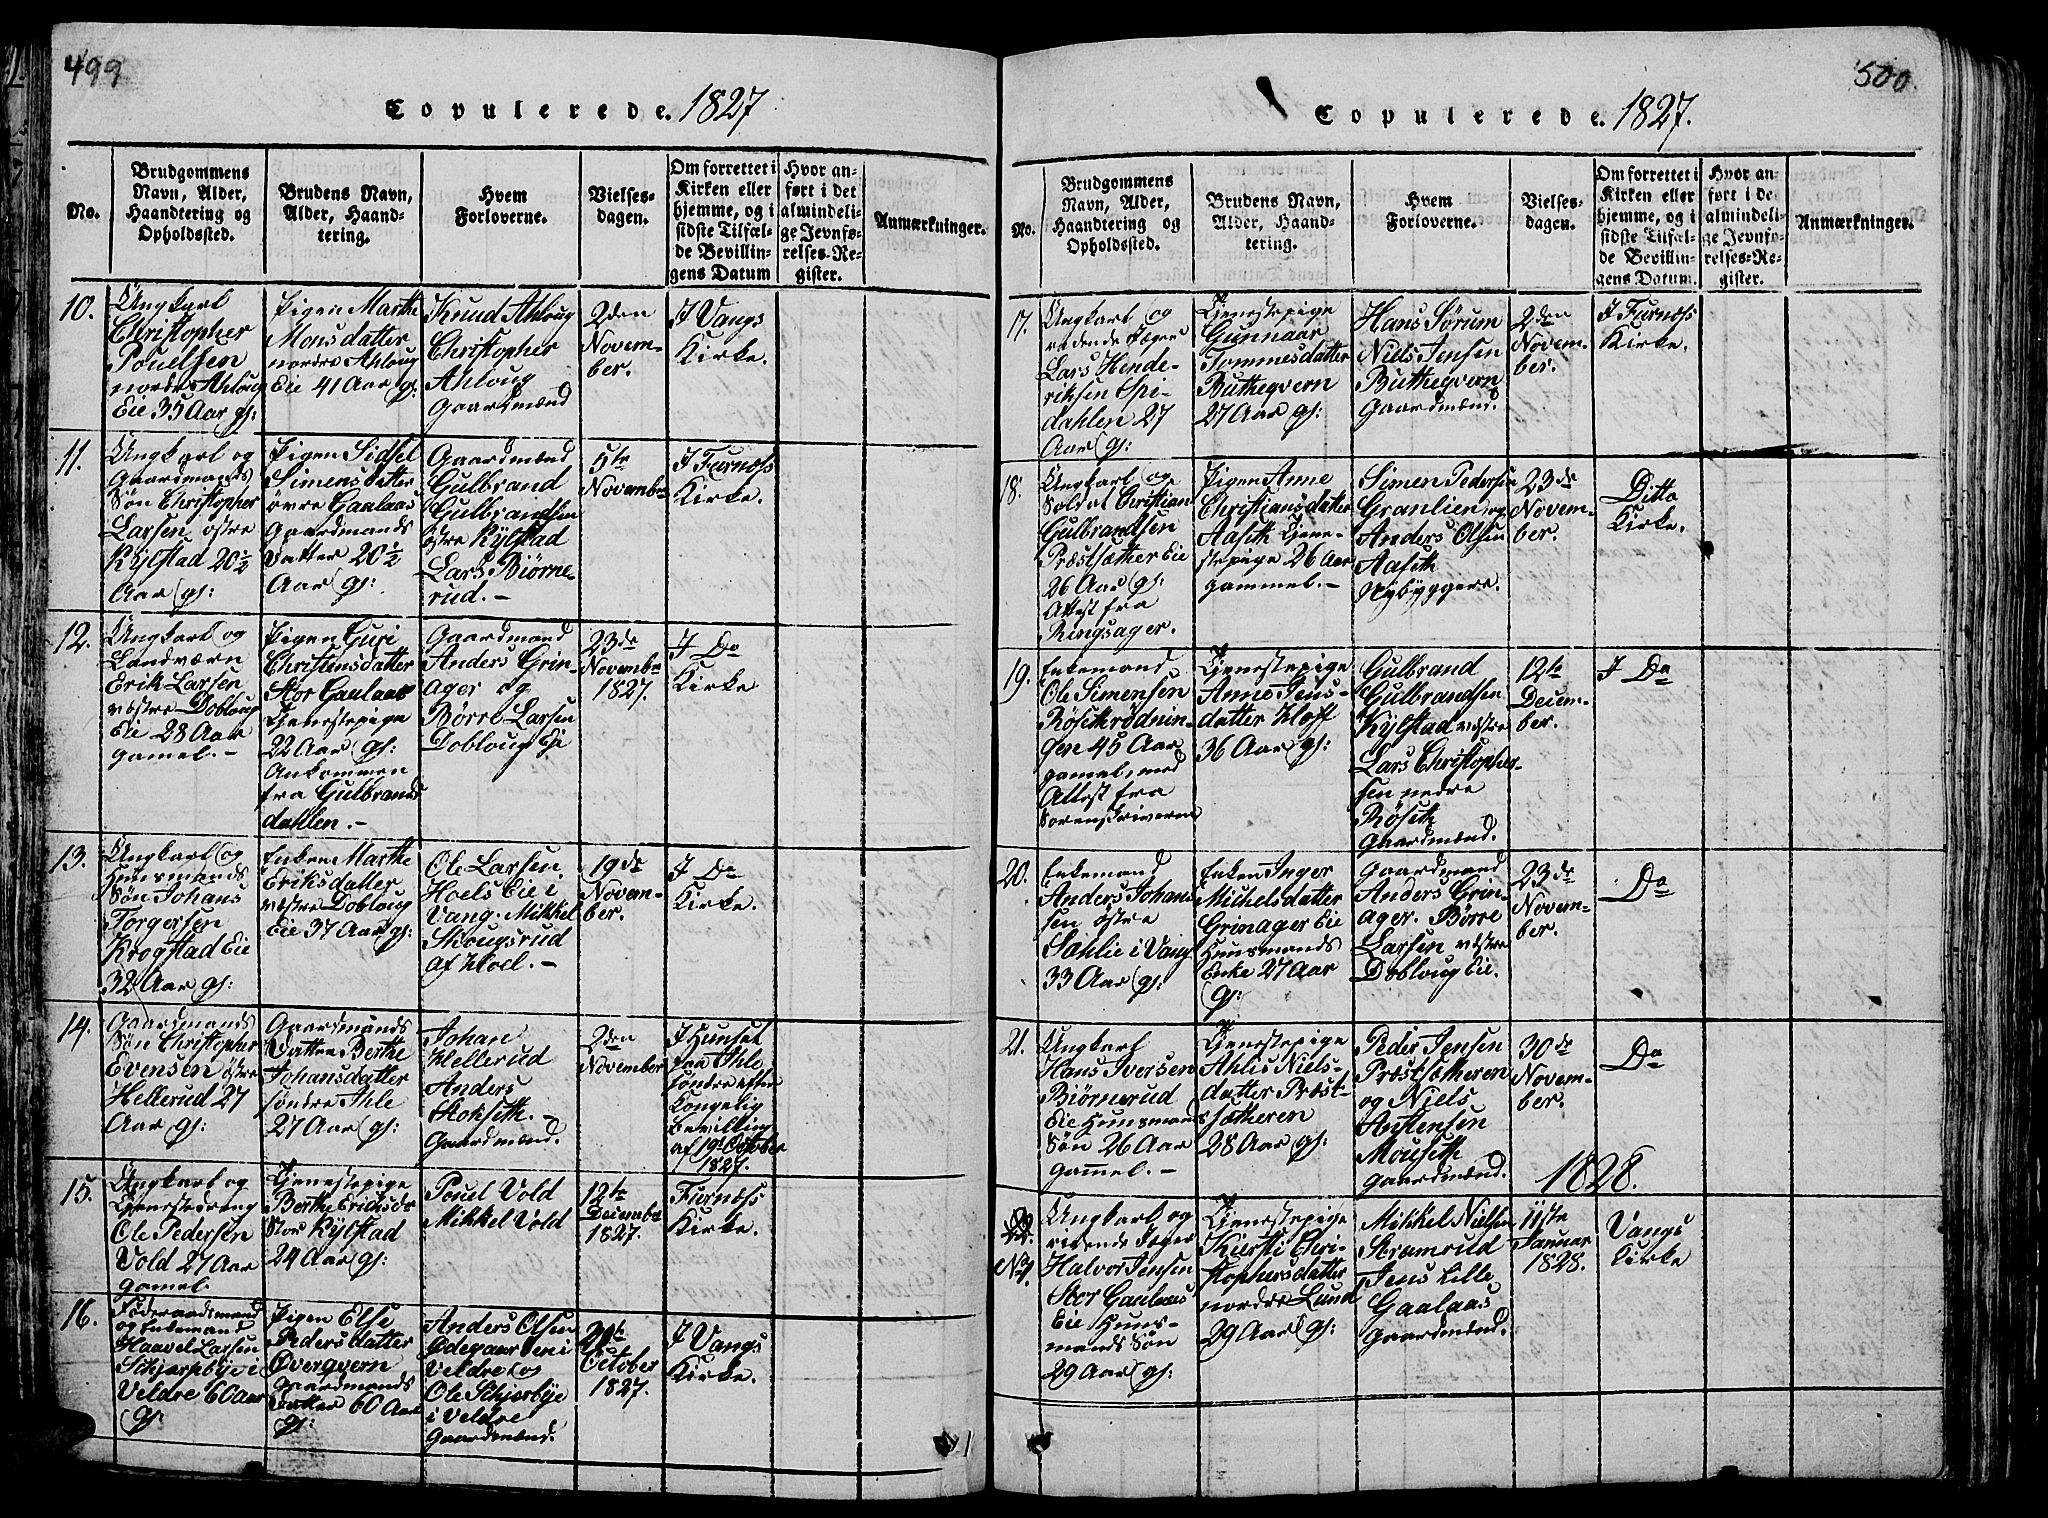 499
Copulerede. 1827
No.
Brudgommens
Navn, Alder,
Haandtering og
Opholdssted.
Brudens Navn,
Alder, Haand-
tering.
Hvem
Forloverne.
Vielses-
dagen.
Om forrettet i
Kirken eller
hjemme, og i
sidste Tilfæl-
de Bevillin-
gens Datum
Hvor an-
ført i det
almindeli-
ge Jevnfø-
relses-Re-
gister.
Anmærkninger.
10.
Ungkarl
Christopher
Pouelsen
nordre Ahloug
Eie 35 Aar gl:
Pigen Marthe
Monsdatter
nordre Ahloug
Eie 41 Aar gl:
Knud Ahloug
Christopher
Ahloug
Gaardmænd
2den
Novem-
ber.
I Vangs
Kirke.
11.
Ungkarl og
Gaardmands
Søn Christopher
Larsen østre
Kylstad 20½
Aar gl:
Pigen Sidsel
Simensdatter
øvre Gaalaas
Gaardmands
datter 20½
Aar gl:
Gaardmænd
Gulbrand
Gulbrandsen
østre Kylstad
Lars Biørne-
rud.-
5te
Novembr
I Furnæss
Kirke.
12.
Ungkarl og
Landværn
Erik Larsen
vestre Dobloug
Eie 28 Aar
gamel.-
Pigen Guri
Christensdatter
Stor Gaalaas
Tjenestepige
22 Aar gl:
Ankommen
fra Gulbrands
dahlen.-
Gaardmand
Anders Grin-
ager og
Børre Larsen
Dobloug Eje
23de
Novembr
1827.
I Do
Kirke
13.
Ungkarl og
Huusmands
Søn Johans
Torgersen
Krogstad Eie
32 Aar gl:
Enken Marthe
Eriksdatter
vestre Dobloug
Eie 37 Aar gl:
Ole Larsen
Hoels Eie i
Vang. Mikkel
Skougsrud
af Hoel.-
19de
Novem-
ber.
I Do
Kirke.
14.
Gaardmands
Søn Christopher
Evensen østre
Hellerud 27
Aar gl:
Gaardmands
Datter Berthe
Johansdatter
søndre Ihle
27 Aar gl:
Johan
Hellerud
Anders
Stokseth.-
Gaardmænd.
2den
November
I Huuset
paa Ihle
søndre efter
Kongelig
Bevilling
af 19d October
1827.
15.
Ungkarl og
Tjenestedreng
Ole Pedersen
Vold 27 Aar
gamel.
Tjenestepige
Berthe Ericksdr
Stor Kylstad
24 Aar gl:
Pouel Vold
Mikkel Vold
12te
Decembr
1827.
Furnæss
Kirke.
16.
Føderaadsmand
og Enkemand
Haavel Larsen
Schjerpbye i
Veldre 60 Aar
gl:
Pigen Else
Pedersdatter
Øverqvern
Gaardmands
Datter 60 Aar
gl:
Anders Olsen
Ødegaarden i
Veldre og
Ole Schjerbye
i Veldre
Gaardmænd.
October
1827.
I Vangs
Kirke.
500.
Copulerede. 1827.
No.
Brudgommens
Navn, Alder,
Haandtering og
Opholdssted.
Brudens Navn,
Alder, Haand-
tering.
Hvem
Forloverne.
Vielses-
dagen.
Om forrettet i
Kirken eller
hjemme, og i
sidste Tilfæl-
de Bevillin-
gens Datum.
Hvor an-
ført i de
almindeli-
ge Jevnfø-
relses-Re-
gister.
Anmærkninger.
17.
Ungkarl og
ridende Jæger
Lars Hende-
riksen Spi-
dahlen 27
Aar gl:
Tjenestepige
Gunnaar
Tommesdatter
Butheqvern
27 Aar gl:
Hans Sørum
Niels Jensen
Butheqvern
Gaardmænd.
2den
Novem-
ber.
I Furnæss
Kirke.
18.
Ungkarl og
Soldat Christian
Gulbrandsen
Præstsæther Eie
26 Aar gl:
Attest fra
Ringsager.
Pigen Anne
Christiansdatter
Aaseth Tjene-
stepige 26 Aar
gammel.-
Simen Pedersen
Granlien og
Anders Olsen
Aaseth
Nybyggere.
23de
Novem-
ber.
Ditto
Kirke.
19.
Enkemand
Ole Simensen
Rösethrödnin-
gen 45 Aar
gamel, med
Attest fra
Sorenskriveren
Tjenestepige
Anne Jens-
datter Kloff
36 Aar gl:
Gulbrand
Gulbrandsen
Kylstad vestre
Lars Christopher-
sen nedre
Röseth
Gaardmænd.
12te
Decem-
ber.
I Do
20.
Enkemand
Anders Johan
sen østre
Sahlie i Vang
33 Aar gl:
Enken Inger
Michelsdatter
Grinager Eie
Huusmands
Enke 27 Aar
gl:
Gaardmand
Anders Grin-
ager. Børre
Larsen vestre
Dobloug Eie.
23de
Novem-
ber.
Do
21.
Ungkarl
Hans Iversen
Biørnerud
Eie Huusmands
Søn 26 Aar
gamel.-
Tjenestepige
Ahlis Niels-
datter Præst-
sætheren
28 Aar gl:
Peder Jensen
Præstsætheren
og Niels
Austensen
Mouseth
Gaardmænd.
30de
Novem-
ber.
Do
1828.
No 1.
Ungkarl og
ridende Jæger
Halvor Jensen
Stor Gaalaas
Eie Huus-
mands Søn
29 Aar gl:
Tjenestepige
Kiersti Chri-
stophersdatter
nordre Lund
29 Aar gl:
Mikkel Nielsen
Stramrud
Jens Lille
Gaalaas
Gaardmænd.
11ste
Januar
1828.
Vangs
Kirke